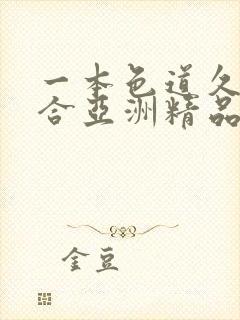 一本色道久
合亞洲精品
金豆